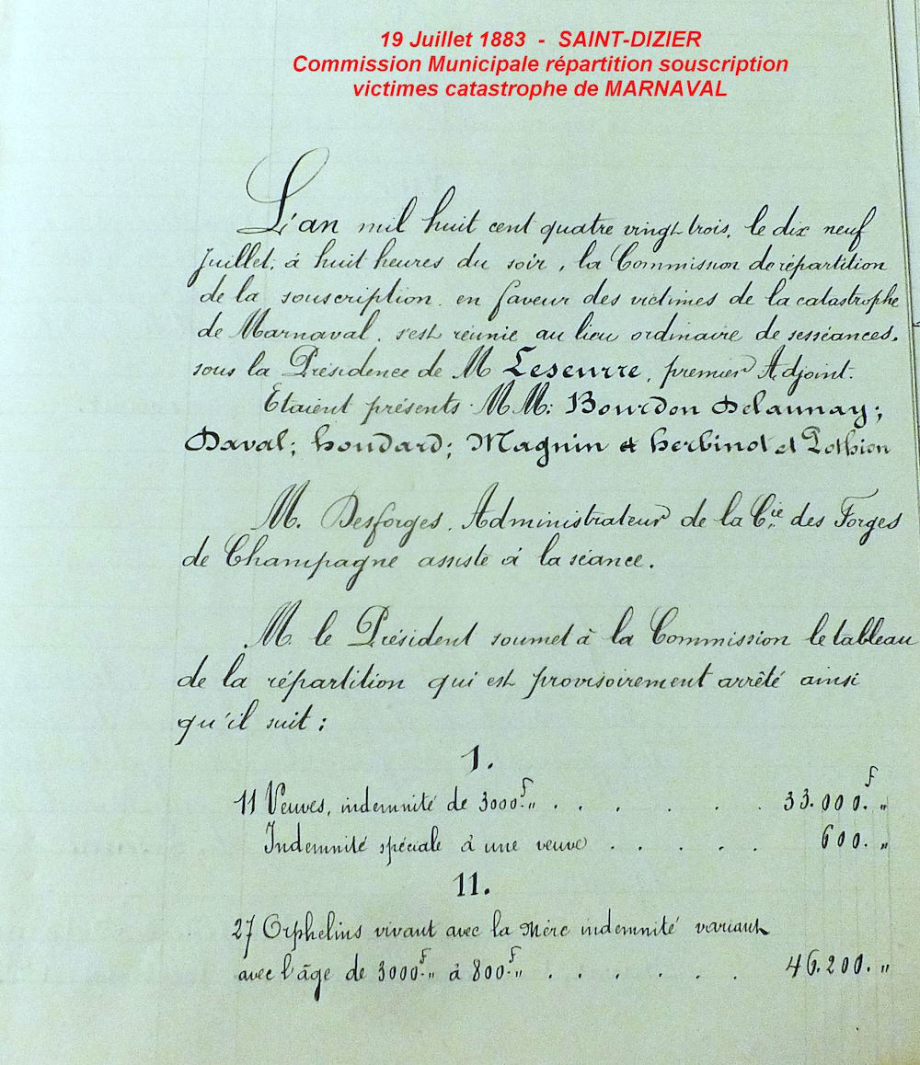 19 Juillet 1883 - SAINT-DIZIER
Commission Municipale répartition souscription
victimes catastrophe de MARNAVAL
L'an mil huit cent quatre vingt trois, le dix neuf
Juillet, à huit heures du soir, la Commission de répartition
de la souscription en faveur des victimes de la catastrophe
de Marnaval, s'est réunie au lieu ordinaire de ses séances,
sous la Présidence de M Leseurre, premier Adjoint.
Etaient présents MM: Bourdon Delaunay;
Daval; houdard; Magnin et herbinot et Pothion
M. Desforges, Administrateur de la Cie des Forges
de Champagne assiste à la séance.
M. le Président soumet à la Commission le tableau
de la répartition qui est provisoirement arrêté ainsi
qu'il suit:
1.
11 Veuves, indemnité de 3000f." . . . . . . 33.000.f "
Indemnité spéciale à une veuve . . . . . 600. "
11.
27 Orphelins vivant avec la mère indemnité variant
avec l'âge de 3000f." à 800f." . . . . . . 46.200. "